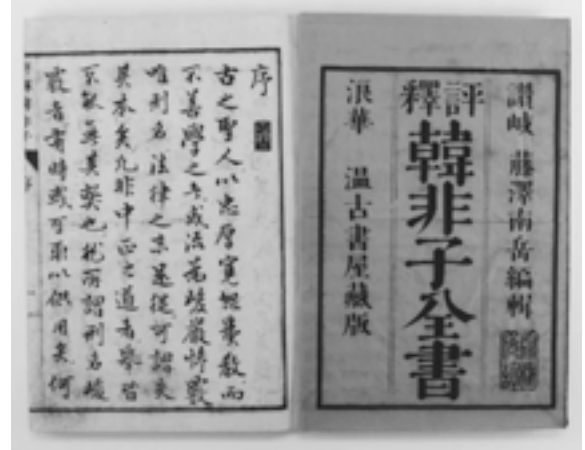 讃岐 藤澤南岳編輯
評釋
韓非子全書
浪華 温古書屋藏版
序
古之聖人以忠厚寛恕垂教而
不善學之者或流
唯刑名法律之末遂從可謂失
其本矣凡非中正之道者擧皆
不能無其弊也 所謂刑名峻
覈者 時或可取以供用矣何